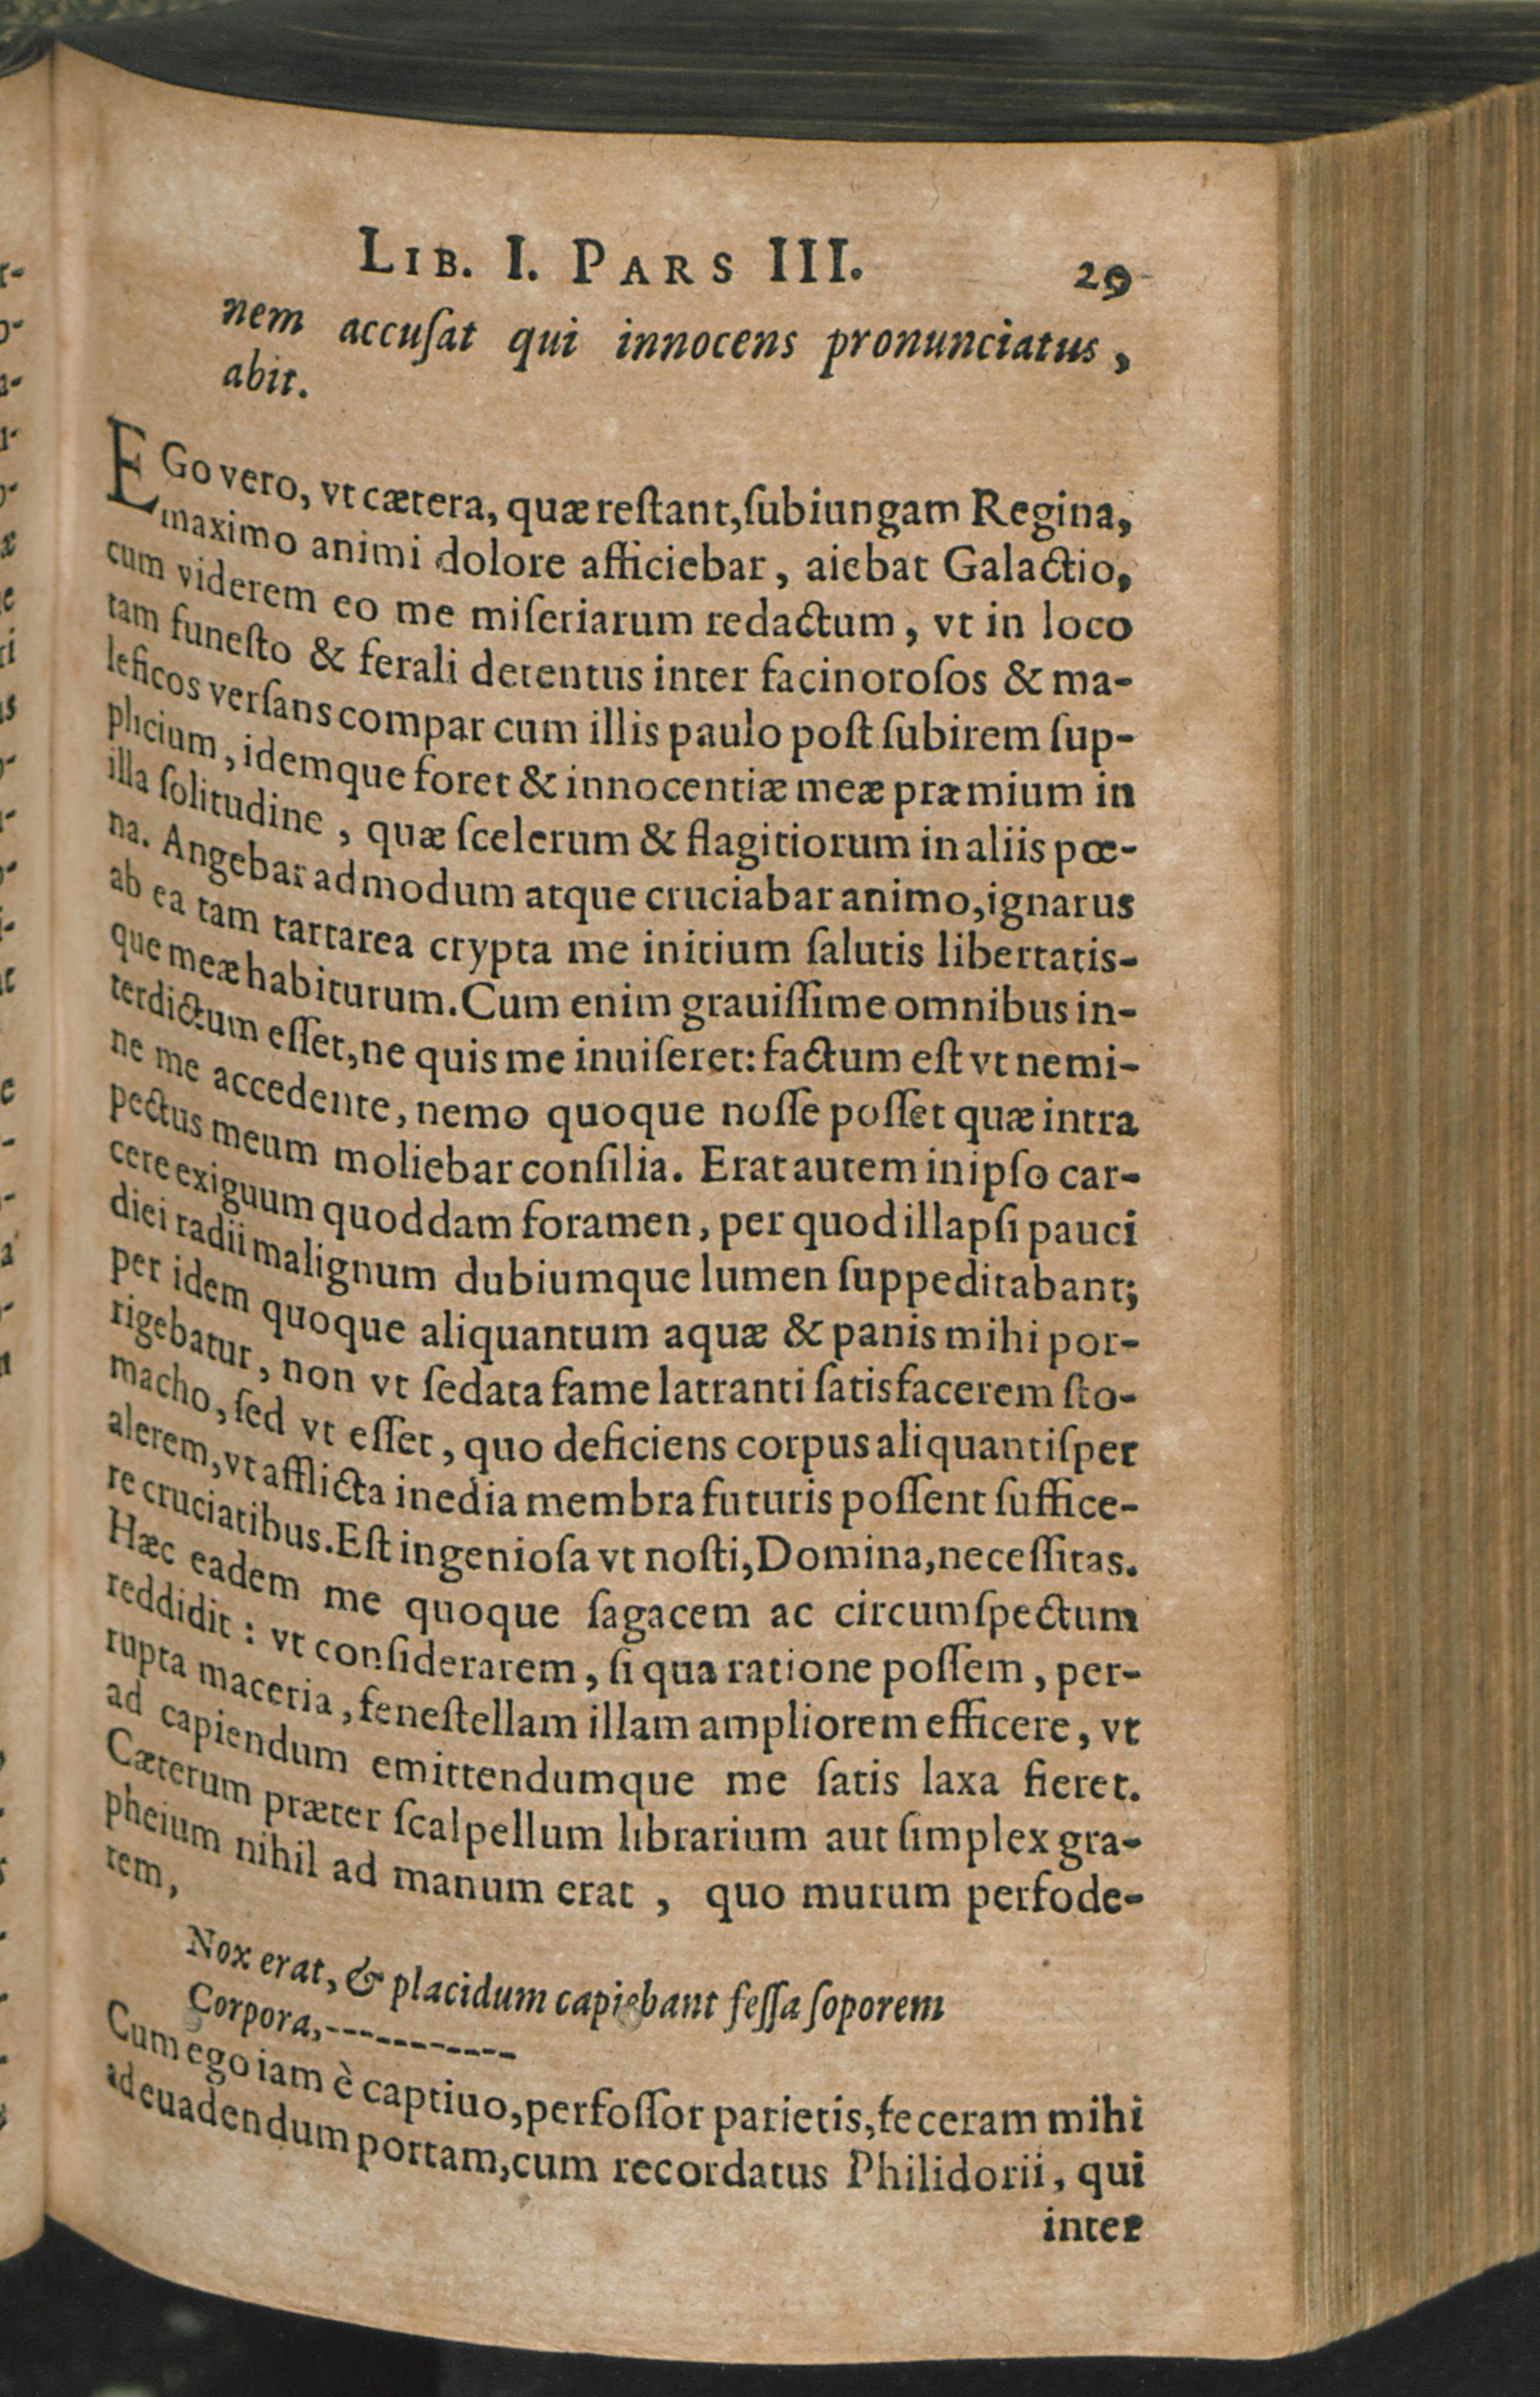 LIB. I. PARS III. 29
nem accuſat qui innocens pronunciatus,
abit.
EGo vero, vt cætera, quæ reſtant, ſubiungam Regina,
maximo animi dolore afficiebar, aiebat Galactio,
cum viderem eo me miſeriarum redactum, vt in loco
tam funeſto & ferali detentus inter facinoroſos & ma-
leficos verſans compar cum illis paulo poſt ſubirem ſup-
plicium, idemque foret & innocentiæ meæ præmium in
illa ſolitudine, quæ ſcelerum & flagitiorum in aliis pœ-
na. Angebar admodum atque cruciabar animo, ignarus
ab ea tam tartarea crypta me initium ſalutis libertatis-
que meæ habiturum. Cum enim grauiſſime omnibus in-
terdictum eſſet, ne quis me inuiſeret: factum eſt vt nemi-
ne me accedente, nemo quoque noſſe poſſet quæ intra
pectus meum moliebar conſilia. Erat autem in ipſo car-
cere exiguum quoddam foramen, per quod illapſi pauci
diei radii malignum dubiumque lumen ſuppeditabant;
per idem quoque aliquantum aquæ & panis mihi por-
rigebatur, non vt ſedata fame latranti ſatisfacerem ſto-
macho, ſed vt eſſet, quo deficiens corpus aliquantiſper
alerem, vt afflicta inedia membra futuris poſſent ſuffice-
re cruciatibus. Eſt ingenioſa vt noſti, Domina, neceſſitas.
Hæc eadem me quoque ſagacem ac circumſpectum
reddidit: vt conſiderarem, ſi qua ratione poſſem, per-
rupta maceria, feneſtellam illam ampliorem efficere, vt
ad capiendum emittendumque me ſatis laxa fieret.
Cæterum præter ſcalpellum librarium aut ſimplex gra-
pheium nihil ad manum erat, quo murum perfode-
rem,
Nox erat, & placidum capiebant feſſa ſoporem
Corpora,-----------
Cum ego iam è captiuo, perfoſſor parietis, feceram mihi
ad euadendum portam, cum recordatus Philidorii, qui
inter